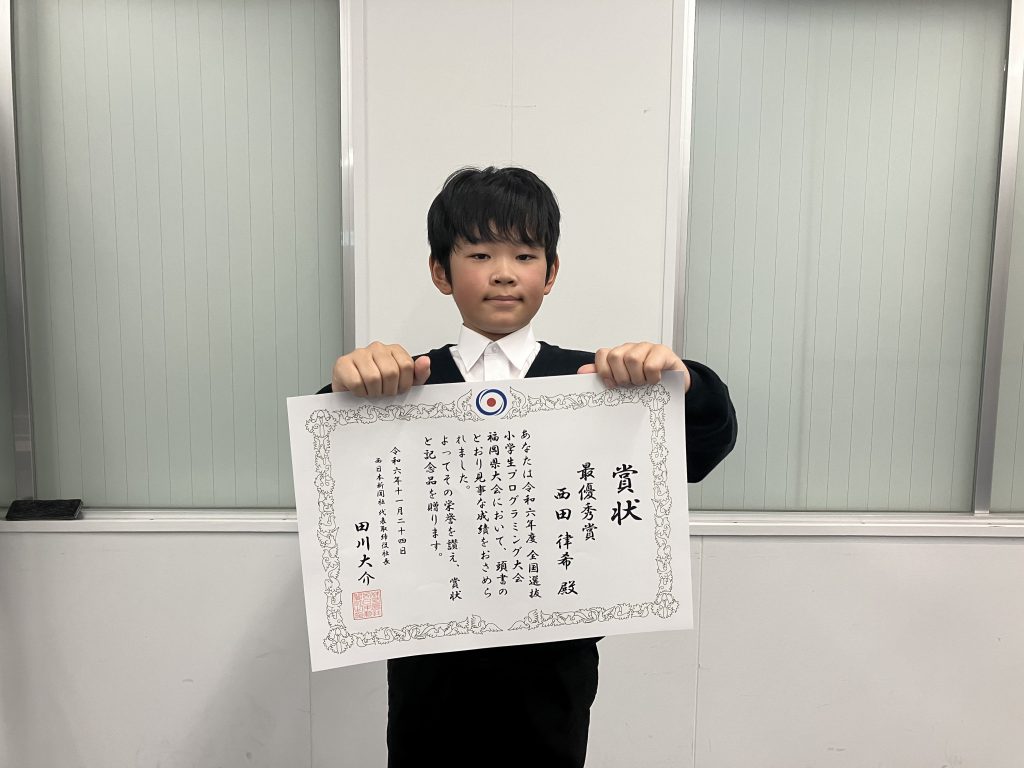 賞状
最優秀賞
西田 律希 殿
あなたは令和六年度 全国選抜
小学生プログラミング大会
福岡県大会において、頭書の
とおり見事な成績をおさめら
れました。
よってその栄誉を讃え、賞状
と記念品を贈ります。
令和六年十一月二十四日
西日本新聞社 代表取締役社長
田川大介